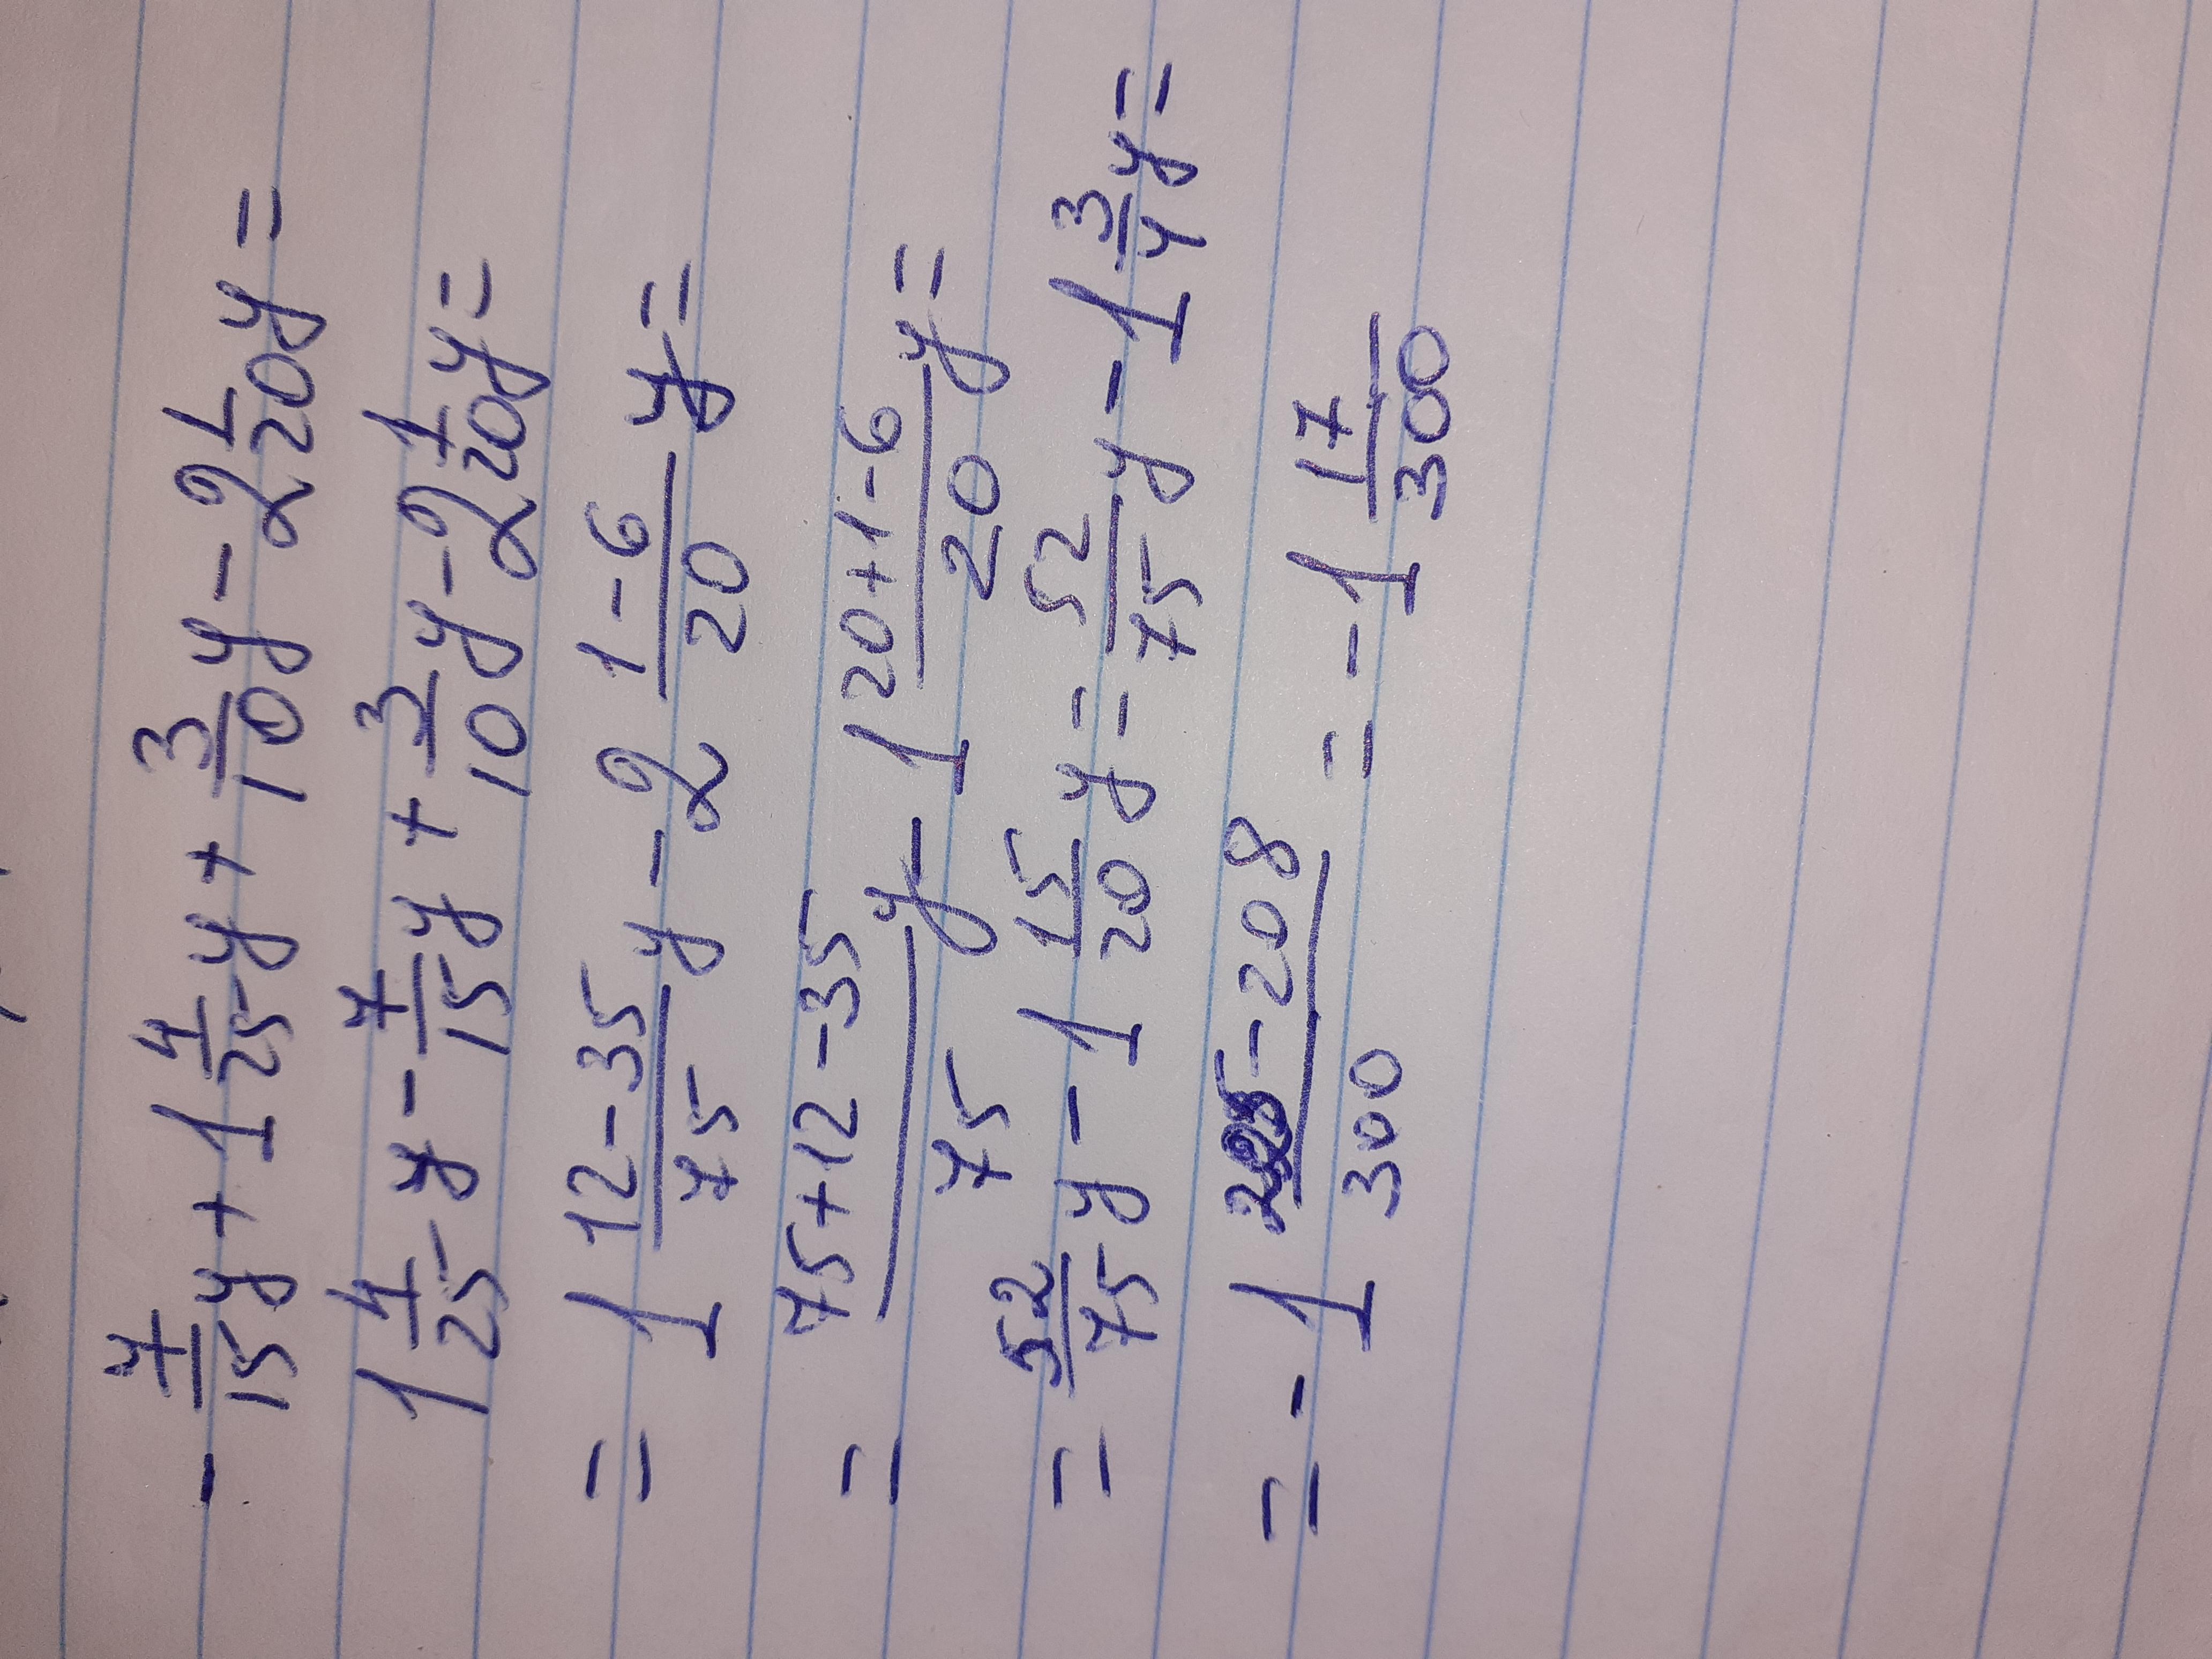 - 7/15 y + 1 4/25 y + 3/10 y - 2 1/20 y =
1 4/25 y - 7/15 y + 3/10 y - 2 1/20 y =
= 1 12-35/75 y - 2 1-6/20 y =
= 75+12-35/75 y - 1 20+1-6/20 y =
= 52/75 y - 1 15/20 y = 52/75 y - 1 3/4 y =
= - 1 225-208/300 = - 1 17/300